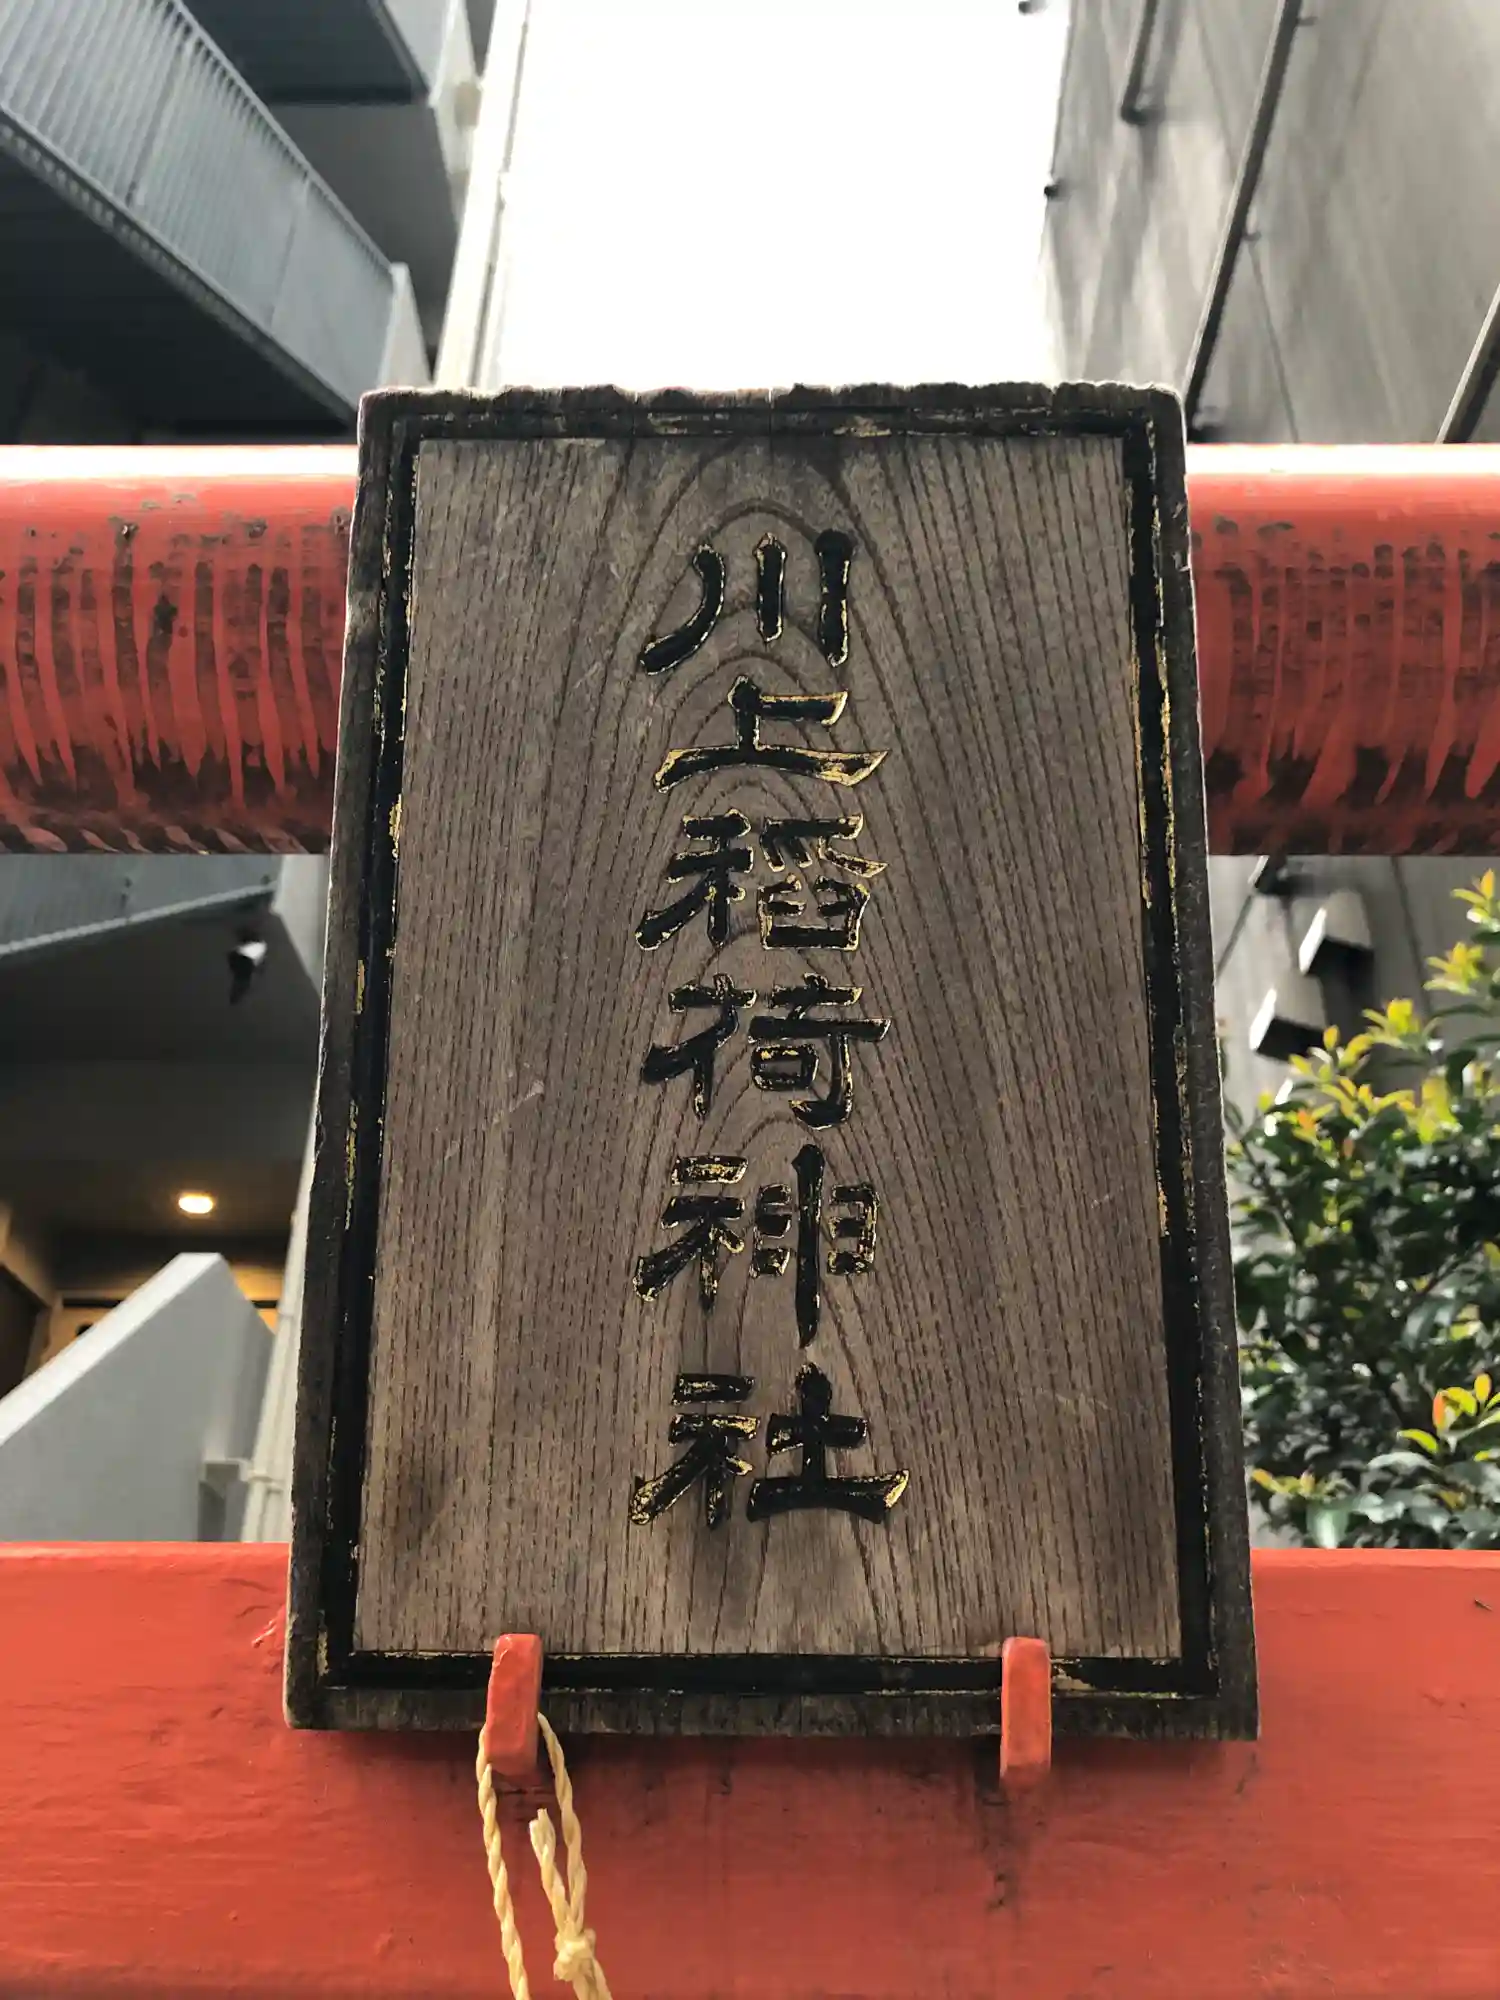 川上稲荷神社